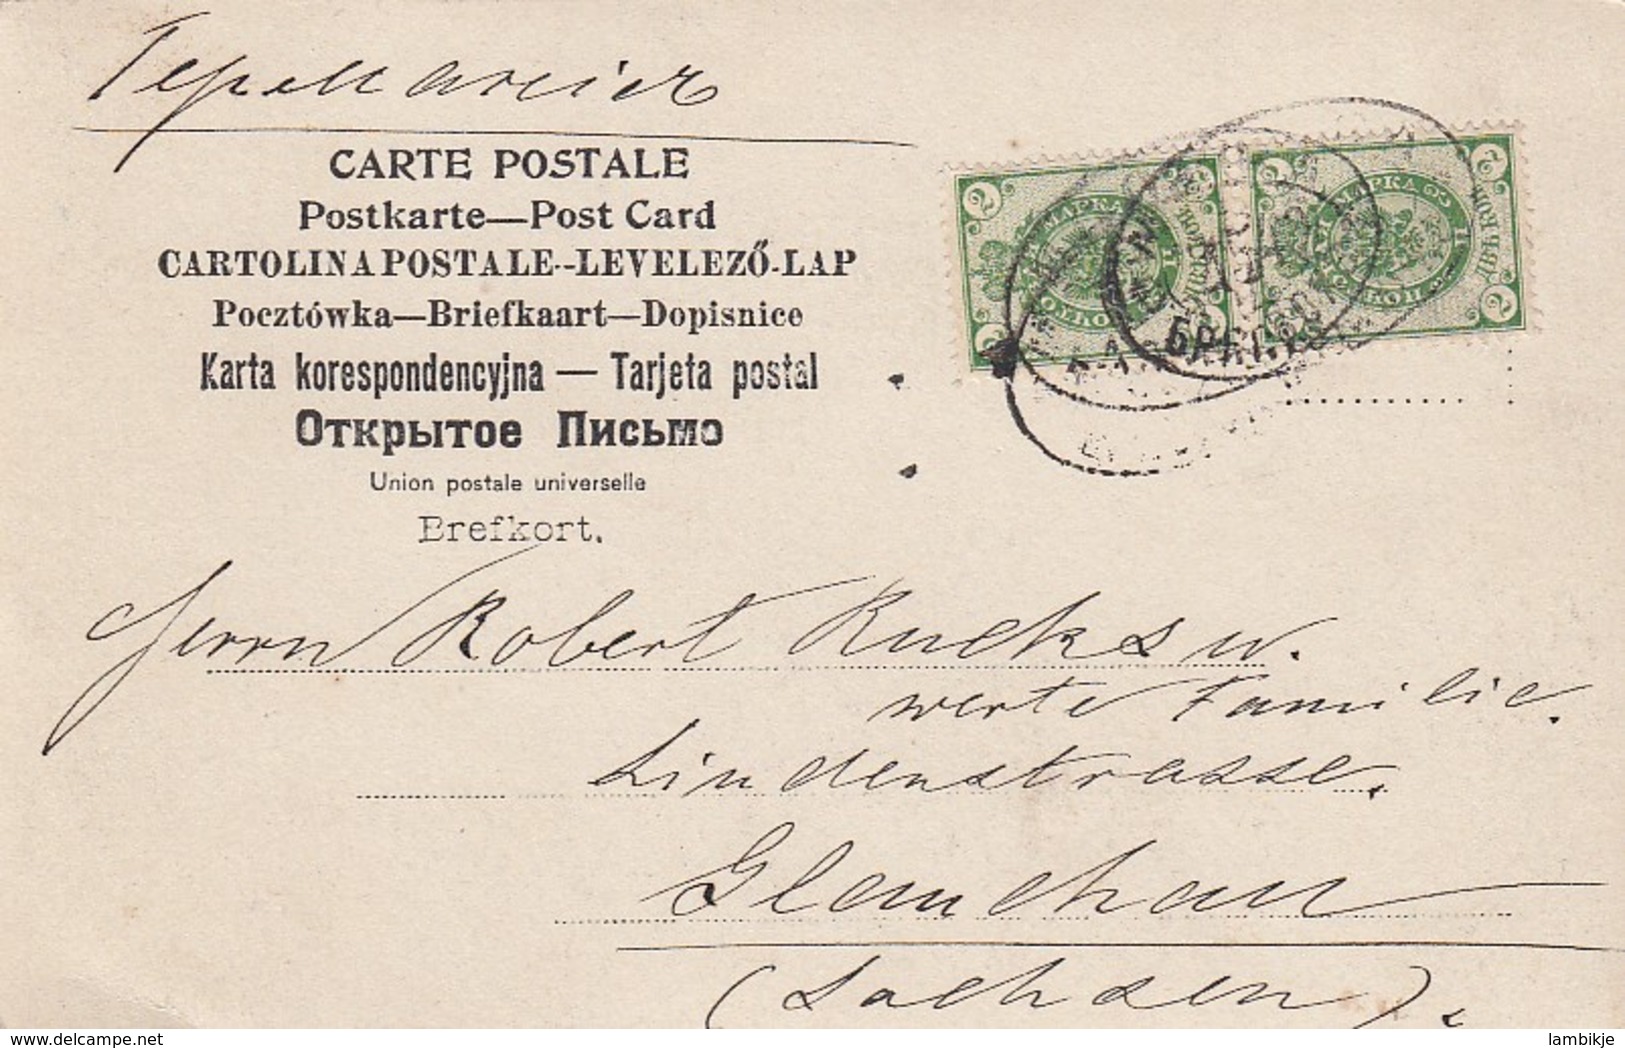 Германiя
CARTE POSTALE
Postkarte—Post Card
CARTOLINA POSTALE--LEVELEZŐ-LAP
Pocztówka—Briefkaart—Dopisnice
Karta korespondencyjna — Tarjeta postal
Открытое Письмо
Union postale universelle
Brefkort.
2 2
МАРКА
2 2
МАРКА
Herrn Robert Rucks u.
werte Familie.
Lindenstrasse.
Glauchau
(Sachsen).
lambikje